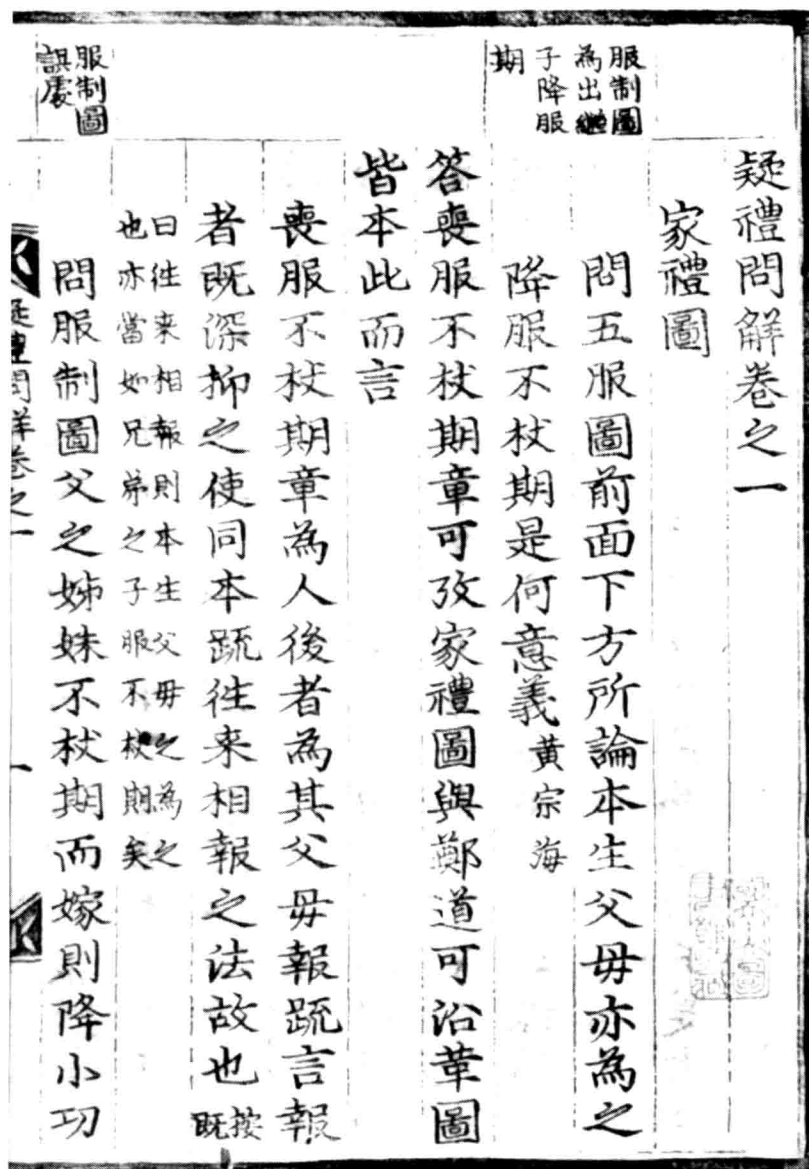 服制圖
為出繼
子降服
期
疑禮問解卷之一
家禮圖
問五服圖前面下方所論本生父母亦為之
降服不杖期是何意義黃宗海
答喪服不杖期章可攷家禮圖與鄭道可沿革圖
皆本此而言
喪服不杖期章為人後者為其父母報疏言報
者既深抑之使同本疏往来相報之法故也按
既
曰往来相報則本生父母之為之
也亦當如兄弟之子服不杖期矣
服制圖
誤處
問服制圖父之姊妹不杖期而嫁則降小功
疑禮問解卷之一
一